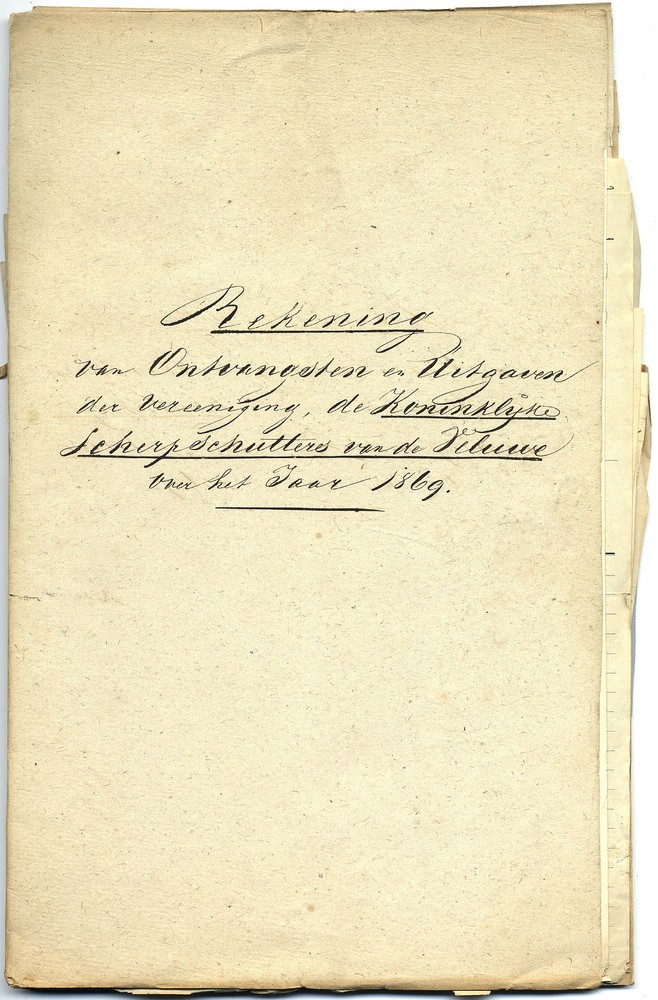 Rekening
van Ontvangsten en Uitgaven
der vereeniging, de Koninklijke
Scherpschutters van de Veluwe
over het Jaar 1869.